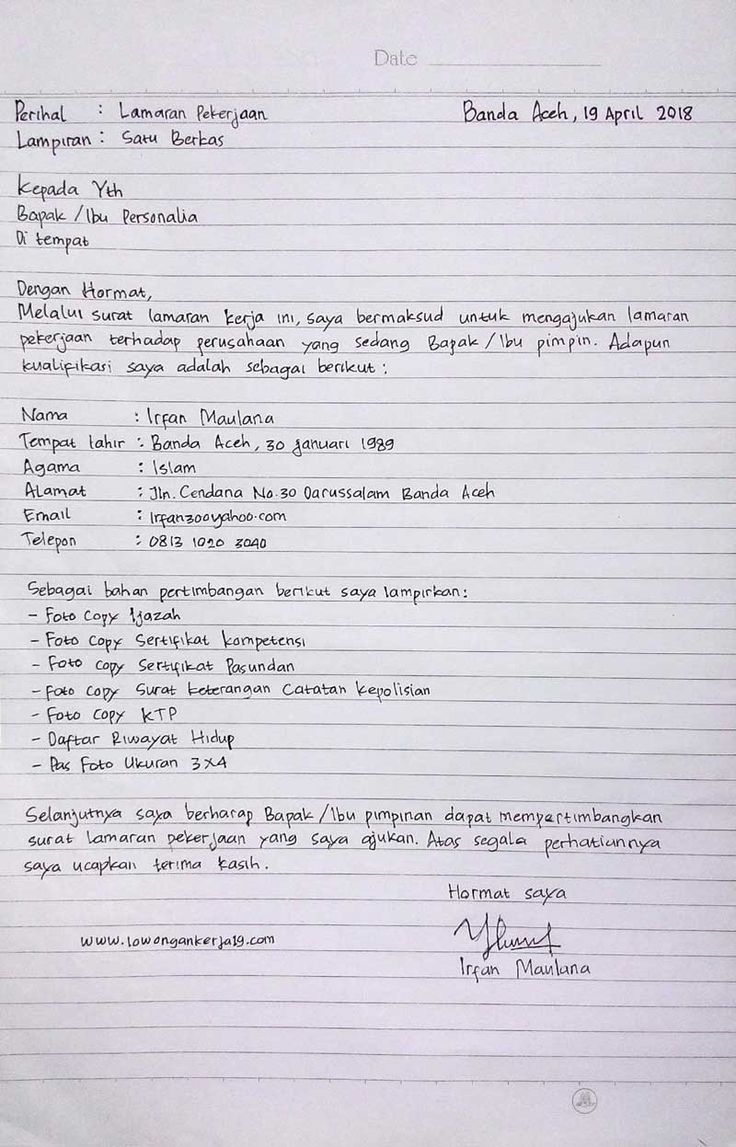 Date
Perihal : Lamaran Pekerjaan Banda Aceh, 19 April 2018
Lampiran : Satu Berkas
Kepada Yth
Bapak /Ibu Personalia
Di tempat
Dengan Hormat,
Melalui surat lamaran kerja ini, saya bermaksud untuk mengajukan lamaran
pekerjaan terhadap perusahaan yang sedang Bapak /Ibu pimpin. Adapun
kualifikasi saya adalah sebagai berikut :
Nama : Irfan Maulana
Tempat lahir : Banda Aceh, 30 Januari 1989
Agama : Islam
Alamat : Jln. Cendana No.30 Darussalam Banda Aceh
Email : Irfan300yahoo.com
Telepon : 0813 1020 3040
Sebagai bahan pertimbangan berikut saya lampirkan :
- Foto Copy Ijazah
- Foto Copy Sertifikat Kompetensi
- Foto Copy Sertifikat Pasundan
- Foto Copy Surat Keterangan Catatan Kepolisian
- Foto Copy KTP
- Daftar Riwayat Hidup
- Pas Foto Ukuran 3x4
Selanjutnya saya berharap Bapak /Ibu pimpinan dapat mempertimbangkan
surat lamaran pekerjaan yang saya ajukan. Atas segala perhatiannya
saya ucapkan terima kasih.
Hormat saya
www.lowongankerja19.com
Irfan Maulana